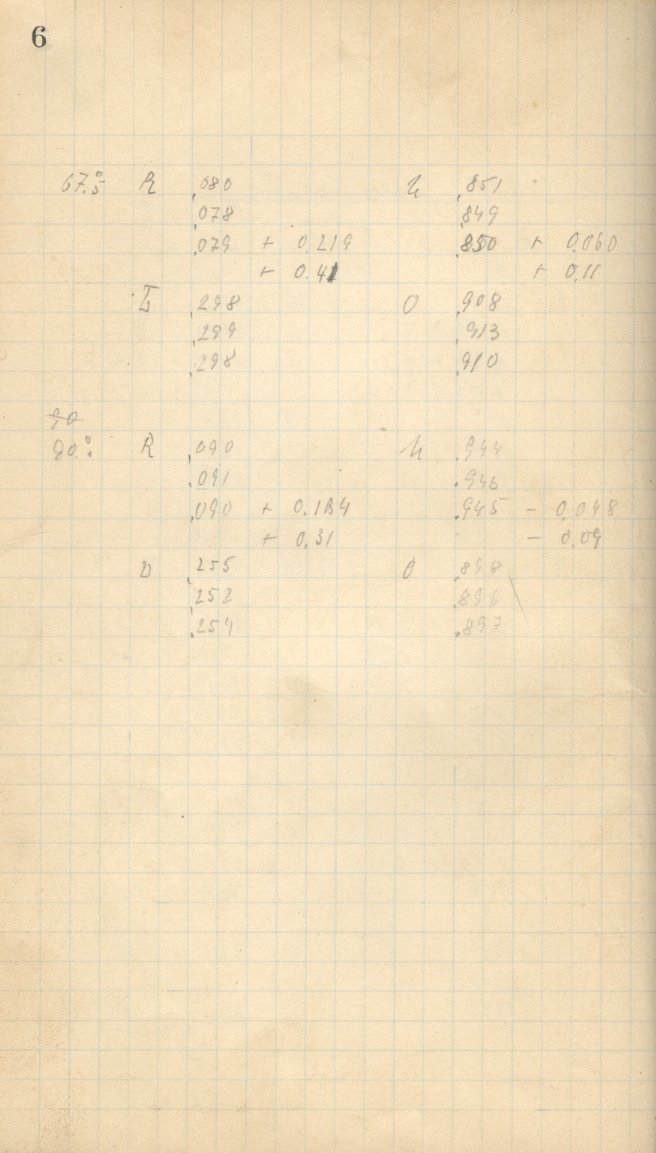 6
67°.5 R .080 U .851
.078 .849
.079 + 0.219 .850 + 0.060
+ 0.41 + 0.11
L .298 O .908
.299 .913
.298 .910
90
90°. R .090 U .944
.091 .946
.090 + 0.164 .945 - 0.048
+ 0.31 - 0.09
.255 O .898
.252 .896
.254 .897